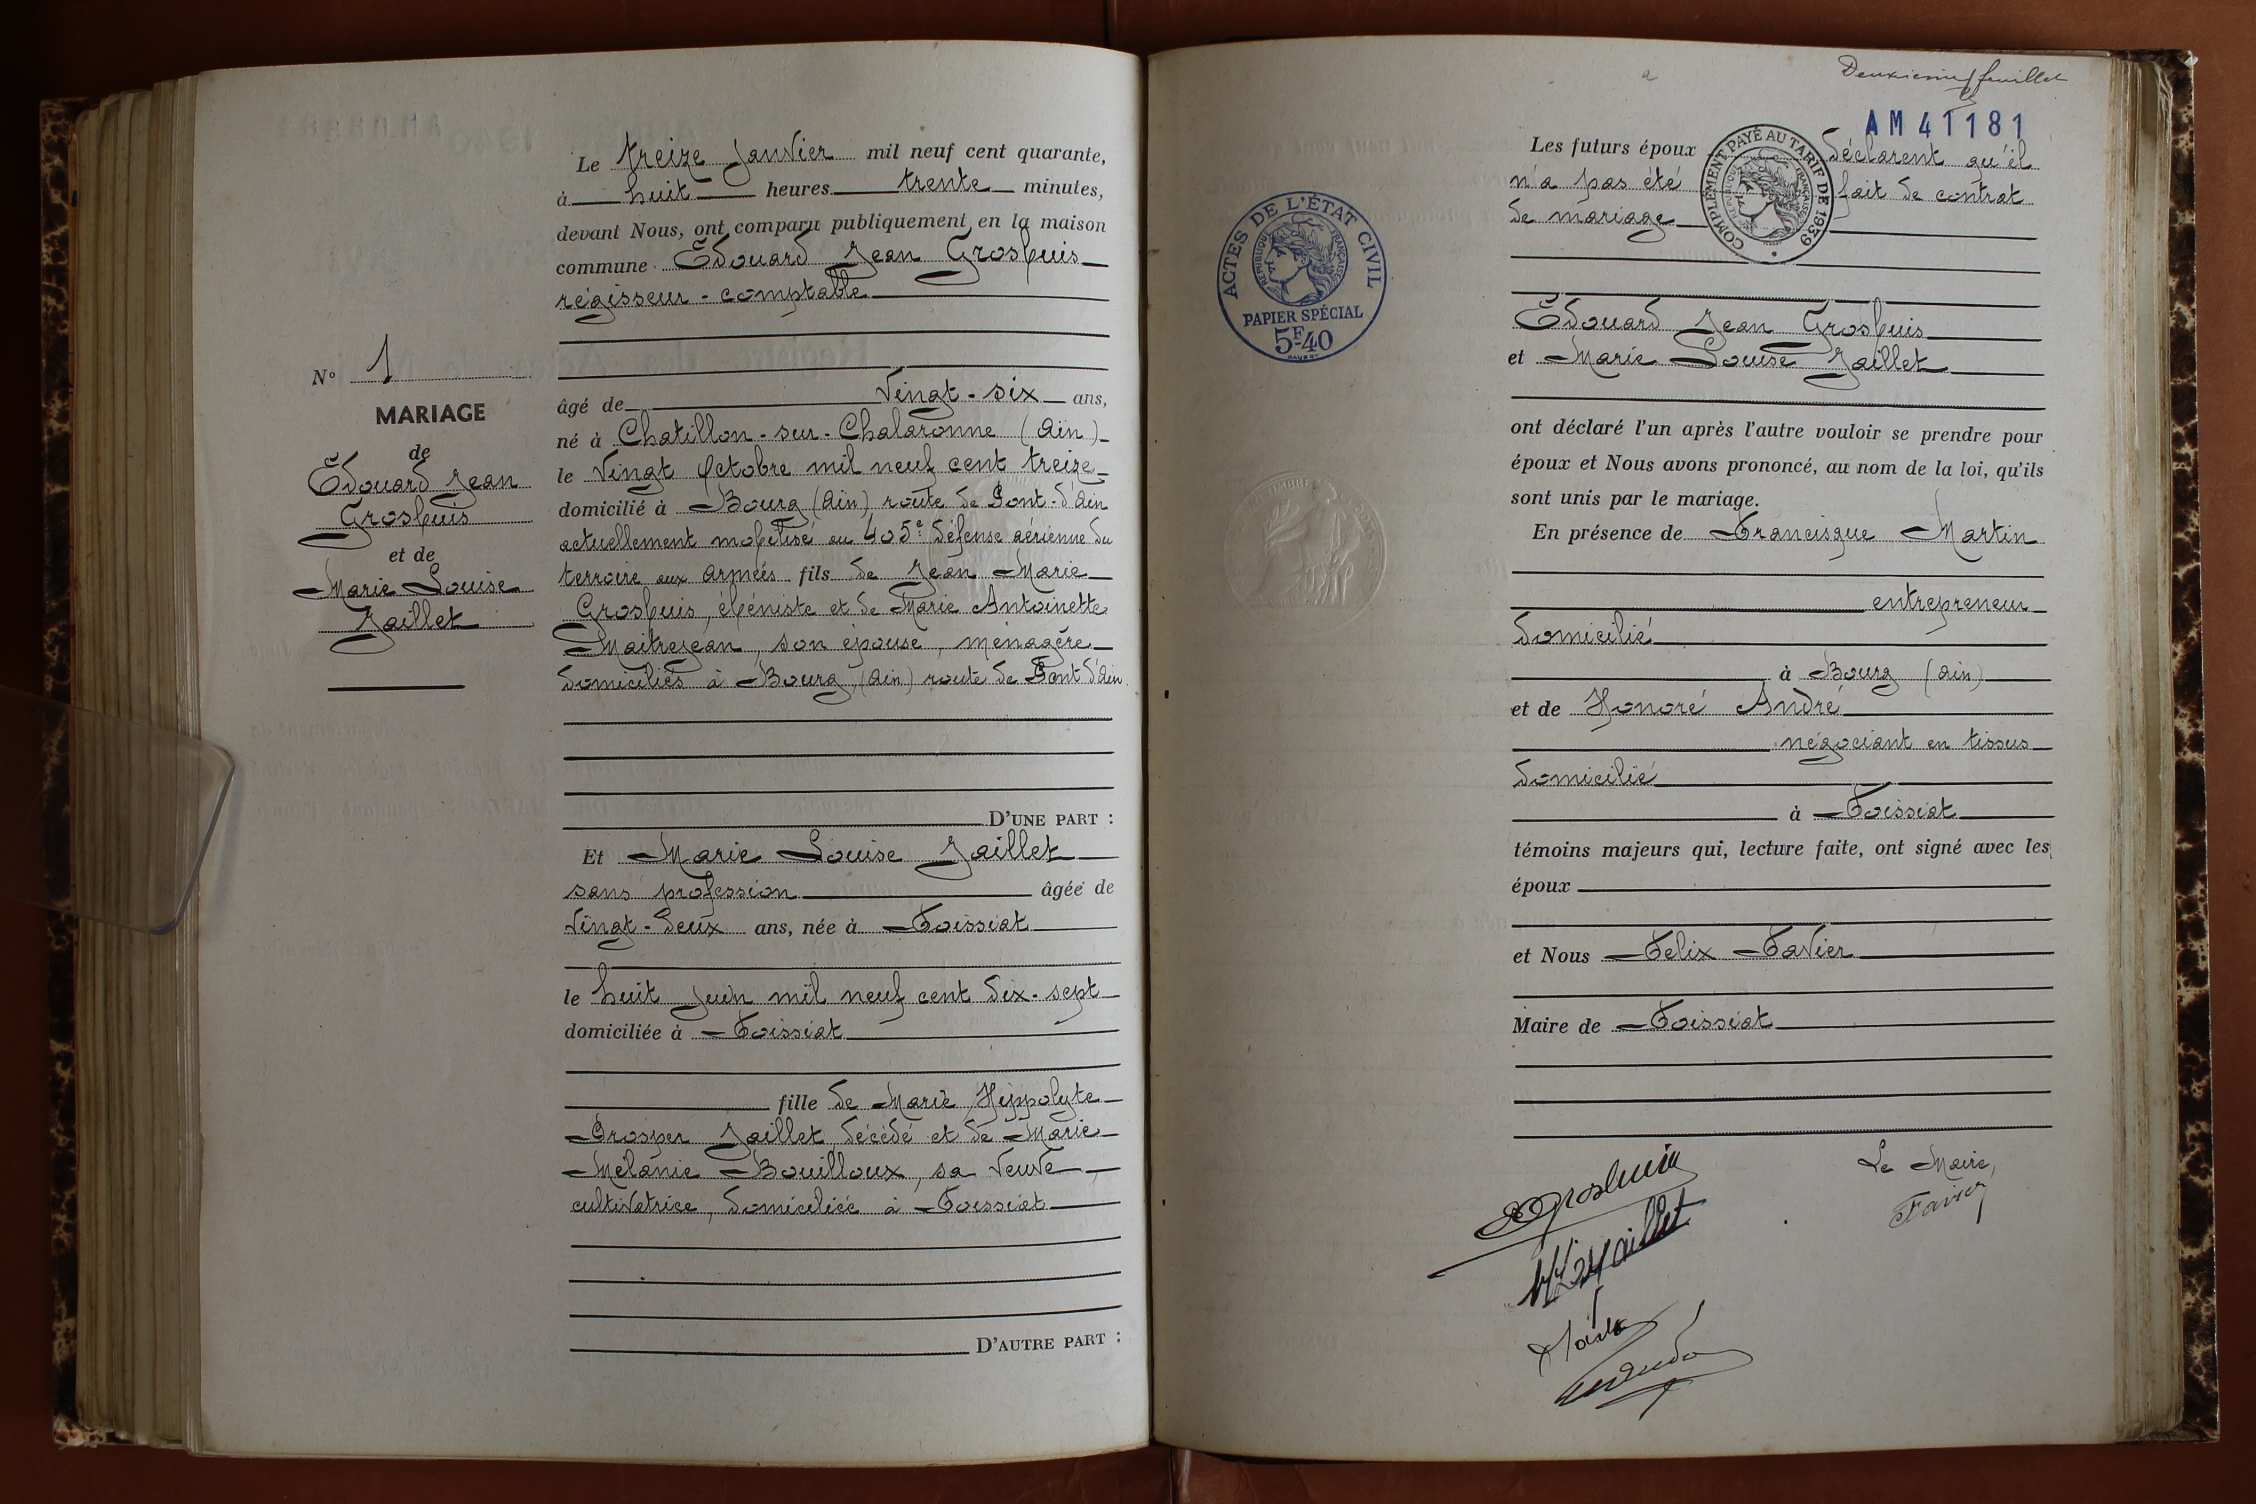 Le treize Janvier mil neuf cent quarante,
à huit heures trente minutes,
devant Nous, ont comparu publiquement en la maison
commune Edouard Jean Grosbuis
régisseur - comptable
N° 1
MARIAGE
de
Edouard Jean
Grosbuis
et de
Marie Louise
Jaillet
âgé de Vingt-six ans,
né à Chatillon-sur-Chalaronne (Ain)
le Vingt Octobre mil neuf cent treize
domicilié à Bourg (Ain) route de Pont-d'Ain
actuellement mobilisé au 405e défense aérienne du
terroire aux armées fils de Jean Marie
Grosbuis, ébéniste et de Marie Antoinette
Maitrejean, son épouse, ménagère
domiciliés à Bourg (Ain) route de Pont d'Ain
D'UNE PART :
Et Marie Louise Jaillet
sans profession âgée de
Vingt-deux ans, née à Foissiat
le huit juin mil neuf cent dix-sept
domiciliée à Foissiat
fille de Marie Hippolyte
Prosper Jaillet décédé et de Marie
Mélanie Bouilloux, sa Veuve,
cultivatrice, domiciliée à Foissiat
D'AUTRE PART :
Deuxième feuillet
AM41181
Les futurs époux déclarent qu'il
n'a pas été fait de contrat
de mariage
COMPLÉMENT PAYÉ AU TARIF DE 1939
RÉPUBLIQUE FRANÇAISE
ACTES DE L'ÉTAT CIVIL
RÉPUBLIQUE FRANÇAISE
PAPIER SPÉCIAL
5F40
Edouard Jean Grosbuis
et Marie Louise Jaillet
ont déclaré l'un après l'autre vouloir se prendre pour
époux et Nous avons prononcé, au nom de la loi, qu'ils
sont unis par le mariage.
En présence de Francisque Martin
entrepreneur
domicilié
à Bourg (Ain)
et de Honoré André
négociant en tissus
domicilié
à Foissiat
témoins majeurs qui, lecture faite, ont signé avec les
époux
et Nous Felix Favier
Maire de Foissiat
Le Maire,
Favier
Grosbuis
ML Jaillet